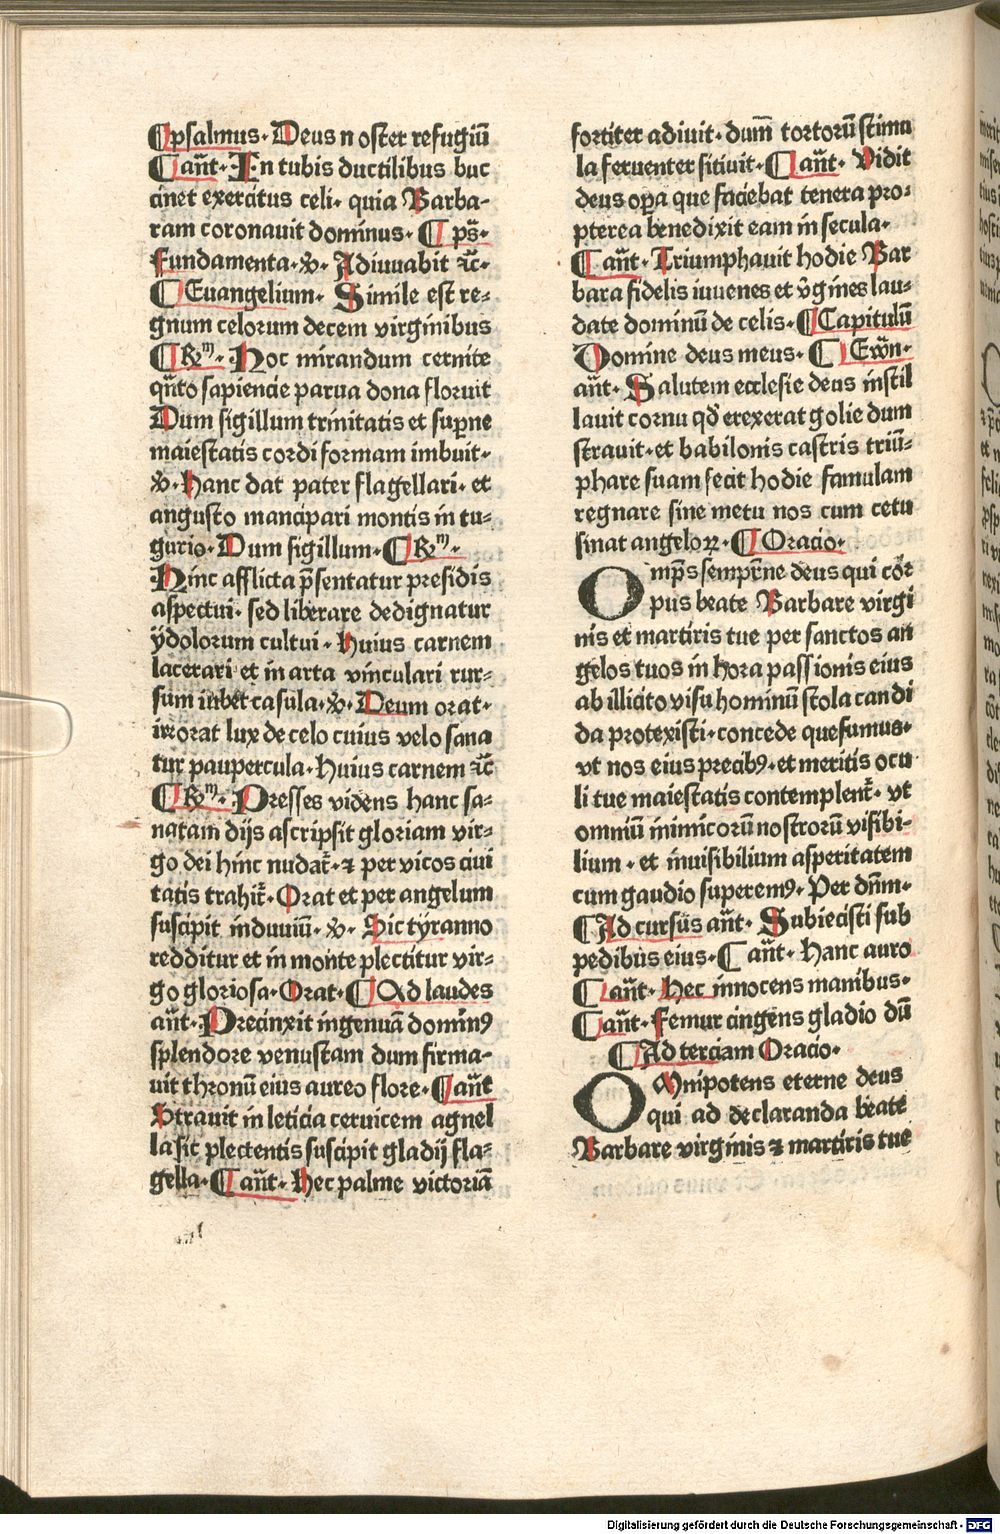 ¶psalmus. Deus n oster refugiū
¶ an̄t. In tubis ductilibus buc
cinet exercitus celi. quia Barba-
ram coronauit dominus. ¶ ps̄.
fundamenta. ꝟ. Adiuuabit ⁊c̄.
¶ Euangelium. Simile est re-
gnum celorum decem virginibus
¶ Rm̄. Hoc mirandum cernite
qn̄to sapiencie parua dona floruit
Dum sigillum trinitatis et sup̱ne
maiestatis cordi formam imbuit.
ꝟ. Hanc dat pater flagellari. et
angusto mancipari montis in tu-
gurio. Dum sigillum. ¶ Rm̄.
Hinc afflicta p̄sentatur presidis
aspectui. sed liberare dedignatur
ydolorum cultui. Huius carnem
lacerari et in arta vinculari rur-
sum iubet casula. ꝟ. Deum orat.
irrorat lux de celo cuius velo sana
tur paupercula. Huius carnem ⁊c̄
¶ Rm̄. Presses videns hanc sa-
natam dijs ascripsit gloriam vir-
go dei hinc nudat̄. ⁊ per vicos ciui
tatis trahit̄. Orat et per angelum
suscipit induuiū. ꝟ. Sic tyranno
redditur et in monte plectitur vir-
go gloriosa. Orat. ¶ Ad laudes
an̄t. Precinxit ingenuā dominꝰ
splendore venustam dum firma-
uit thronū eius aureo flore. ¶an̄t
Strauit in leticia ceruicem agnel
la sic plectentis suscipit gladij fla-
gella. ¶ an̄t. Hec palme victoriā
fortiter adiuit. dum̄ tortorū stimu
la feruenter sitiuit. ¶ an̄t. Vidit
deus oꝑa que faciebat tenera pro-
pterea benedixit eam in secula.
¶ an̄t. Triumphauit hodie Bar
bara fidelis iuuenes et v̄gines lau-
date dominū de celis. ¶Capitulū
Domine deus meus. ¶ Ewn̄.
an̄t. Salutem ecclesie deus instil
lauit cornu qd̄ erexerat golie dum
strauit. et babilonis castris triū-
phare suam fecit hodie famulam
regnare sine metu nos cum cetu
sinat angeloꝝ. ¶ Oracio.
Omp̄s sempr̄ne deus qui cor̄
pus beate Barbare virgi
nis et martiris tue per sanctos an
gelos tuos in hora passionis eius
ab illicito visu hominū stola candi
da protexisti. concede quesumus.
vt nos eius precibꝰ. et meritis ocu
li tue maiestatis contemplent̄. vt
omniū inimicorū nostrorū visibi-
lium. et inuisibilium asperitatem
cum gaudio superemꝰ. Per dn̄m.
¶Ad cursus an̄t. Subiecisti sub
pedibus eius. ¶ an̄t. Hanc auro
¶ an̄t. Hec innocens manibus.
¶ an̄t. Femur cingens gladio dū
¶Ad terciam Oracio.
Omnipotens eterne deus
qui ad declaranda beate
Barbare virginis ⁊ martiris tue
Digitalisierung gefördert durch die Deutsche Forschungsgemeinschaft - DFG